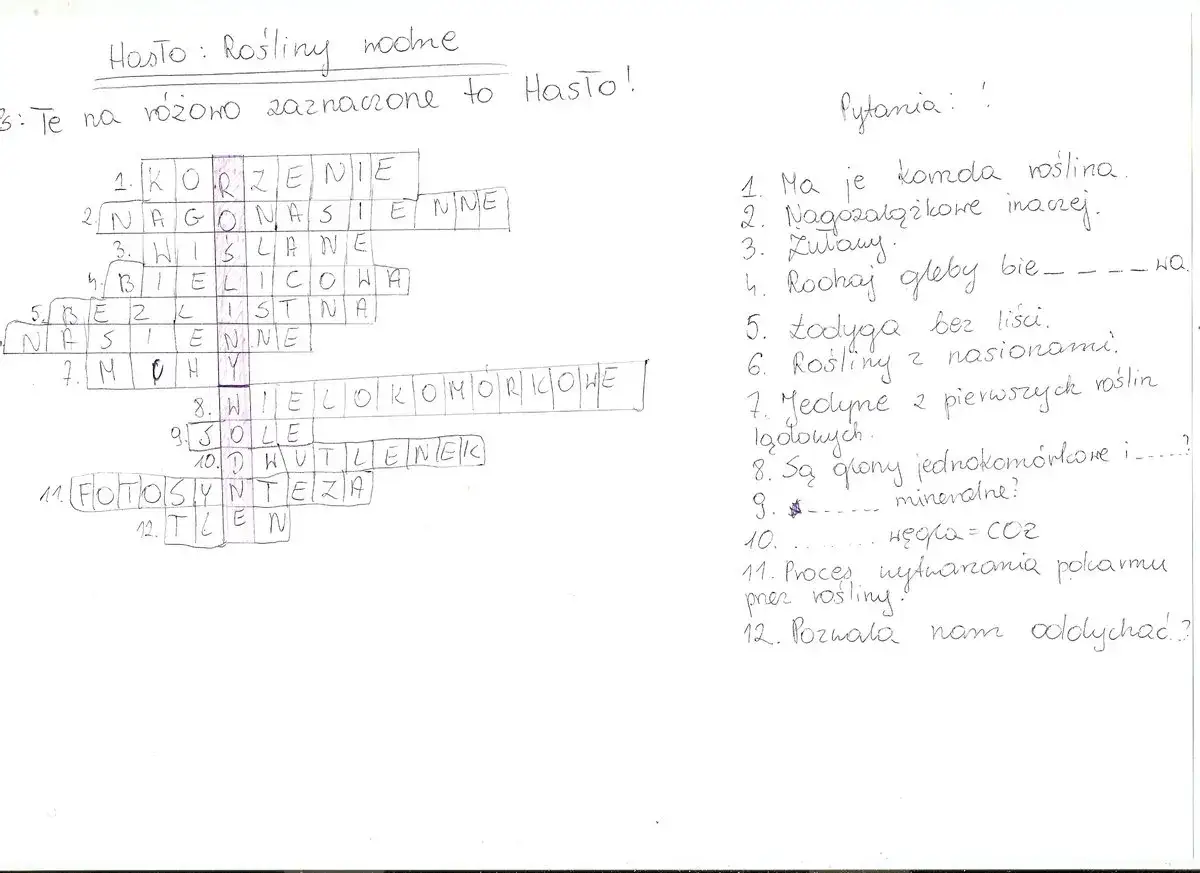 Hasło: Rośliny wodne
Ps: Te na różowo zaznaczone to Hasło!
1. KORZENIE
2. NAGONASIENNE
3. WIŚLANE
4. BIELICOWA
5. BEZLISTNA
NASIENNE
7. MCHY
8. WIELOKOMÓRKOWE
9. SOLE
10. DWUTLENEK
11. FOTOSYNTEZA
12. TLEN
Pytania:
1. Ma je każda roślina.
2. Nagozalążkowe inaczej.
3. Żuławy.
4. Rodzaj gleby bie_ _ _ _ wa
5. Łodyga bez liści.
6. Rośliny z nasionami.
7. Jedyne z pierwszych roślin
lądowych.
8. Są glony jednokomórkowe i ....?
9. ...... mineralne?
10. ........ węgla = CO2
11. Proces wytwarzania pokarmu
przez rośliny.
12. Pozwala nam oddychać?